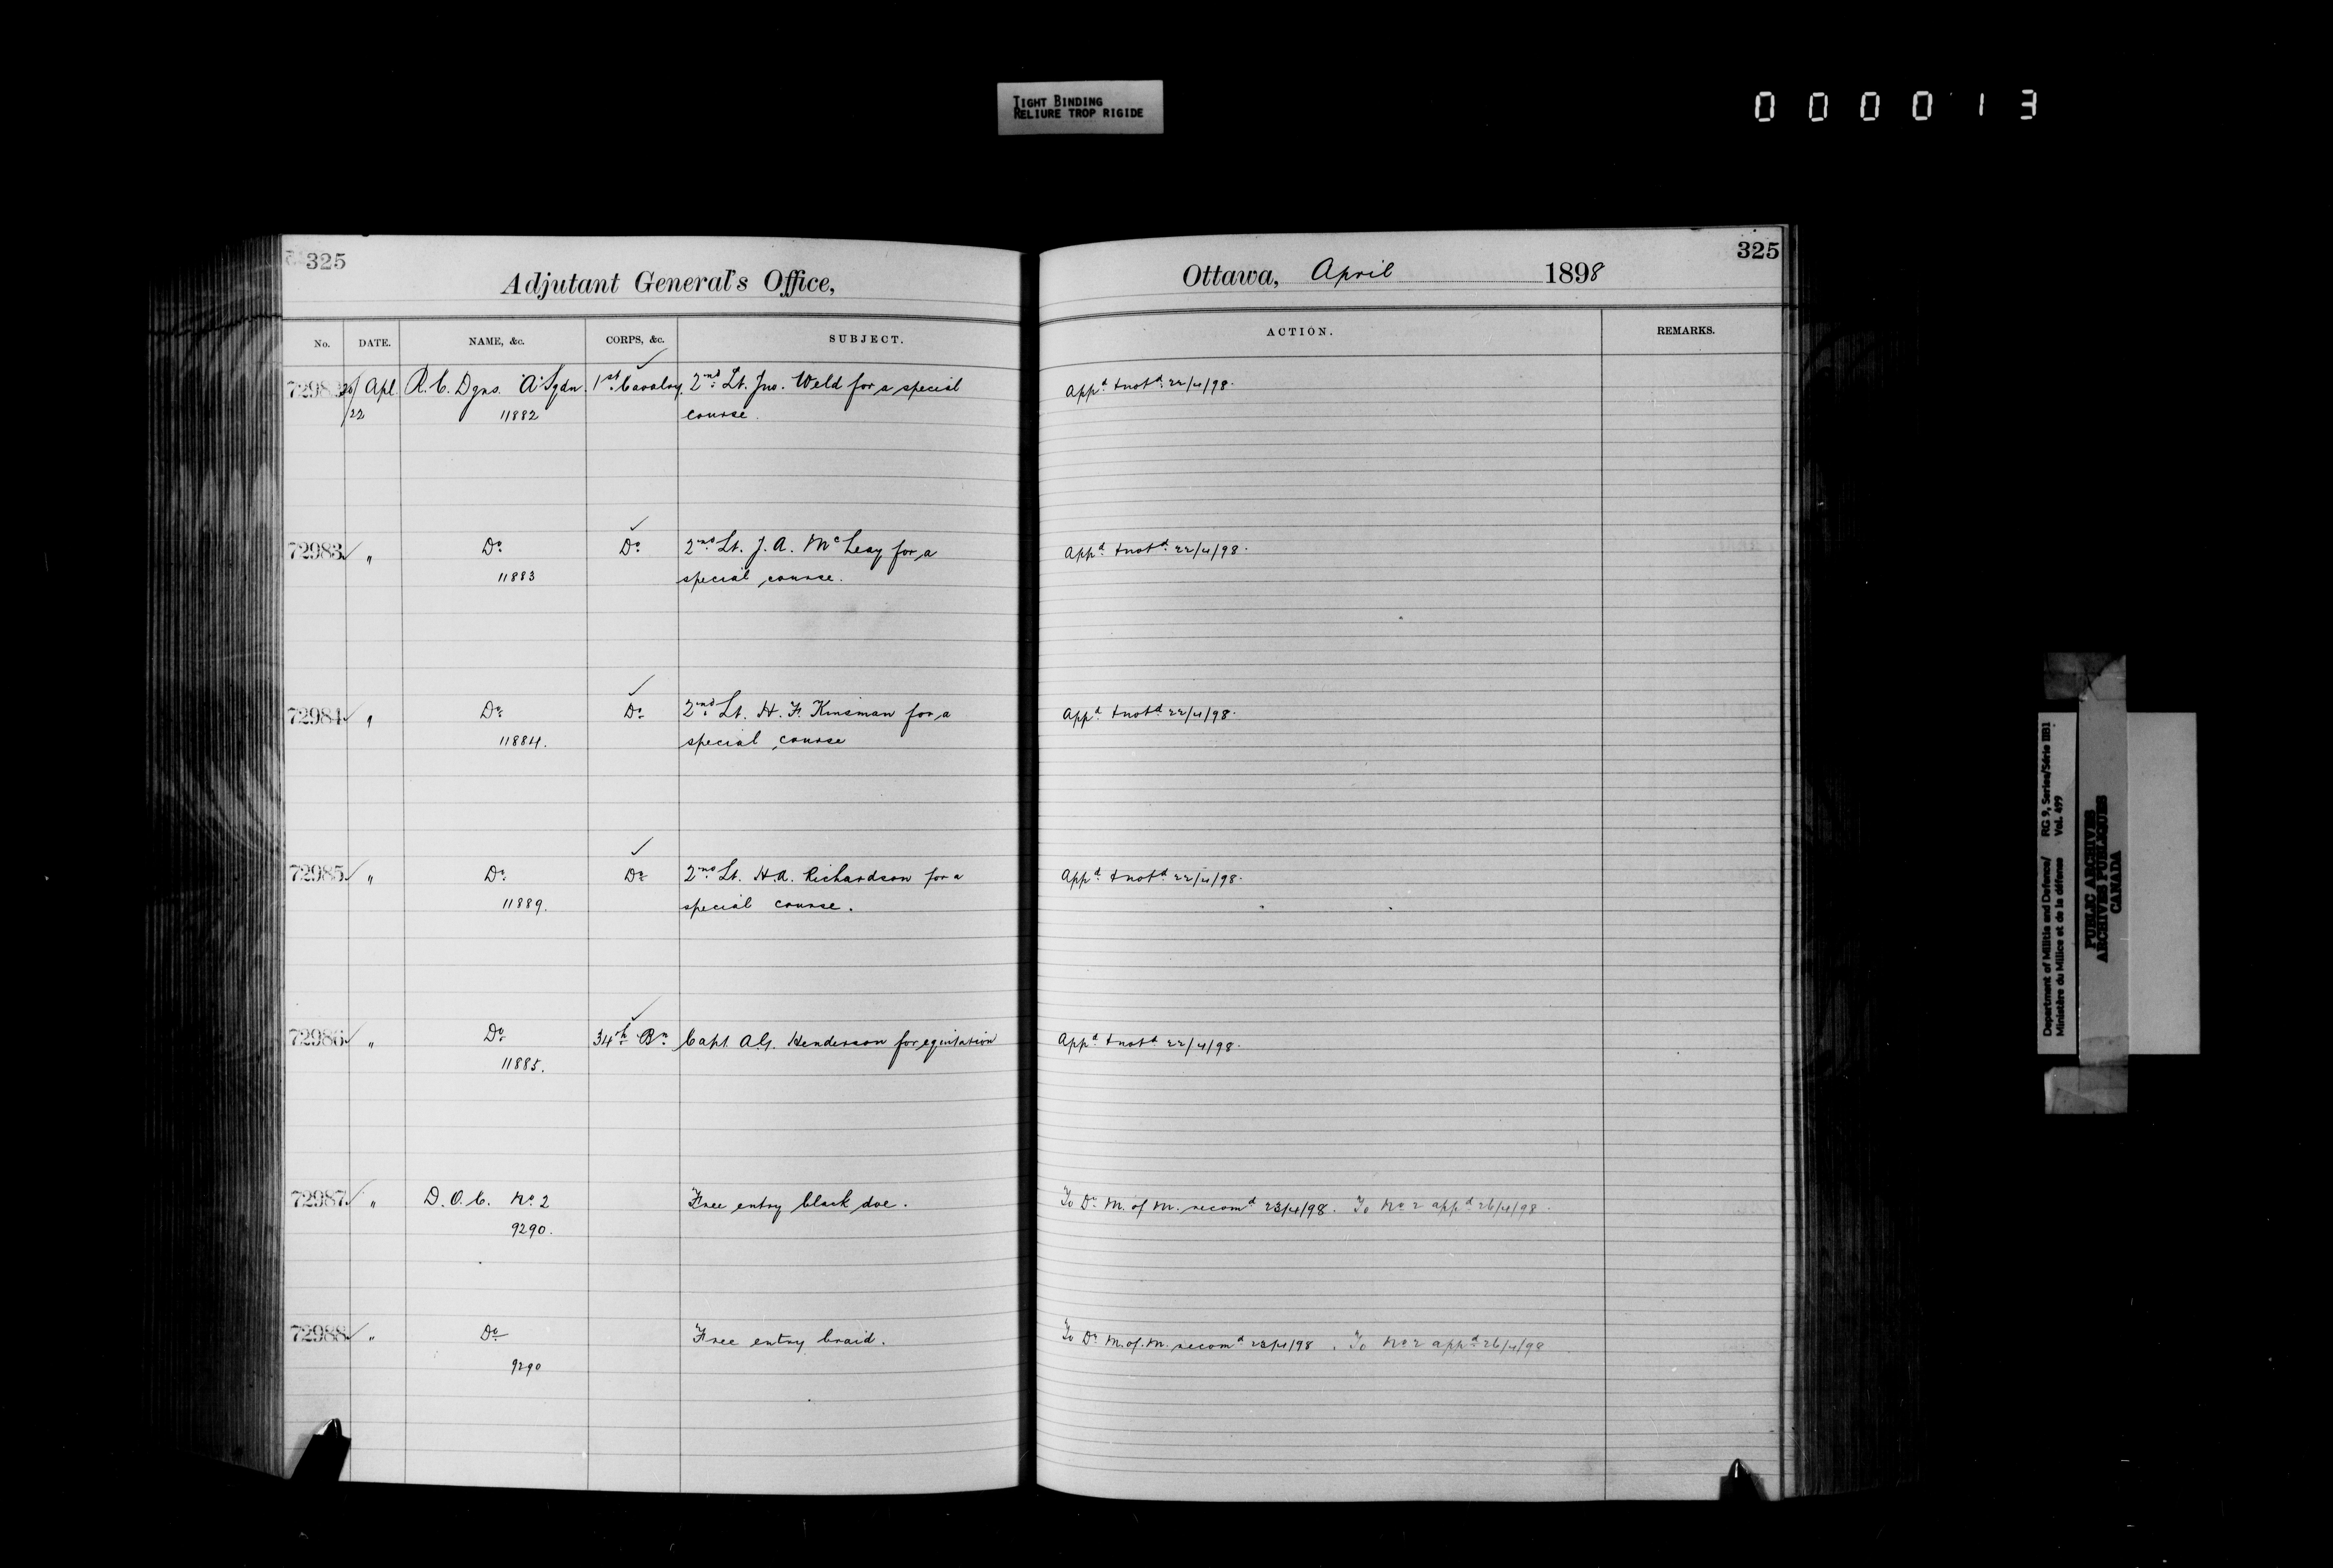 TIGHT BINDING
RELIURE TROP RIGIDE
000013
325
Adjutant General's Office,
No. DATE. NAME, &c. CORPS, &c. SUBJECT.
20/ Apl. R. C. Dgns. "A" Sqdn. 1st Cavalry. 2nd Lt. Jno. Weld for a special
/22 11882 course.
72983 ✓ " Do. Do. 2nd Lt. J. A. McLeay for a
11883 special course.
72984 ✓ " Do. Do. 2nd Lt. H. F. Kinsman for a
11884. special course
72985 ✓ " Do. Do. 2nd Lt. H. A. Richardson for a
11889. special course.
72986 ✓ " Do. 34th Bn. Capt. A. G. Henderson for equitation
11885.
72987 ✓ " D. O. C. No. 2 Free entry black doe.
9290.
72988 ✓ " Do. Free entry braid.
9290
325
Ottawa, April 1898
ACTION. REMARKS.
Appd. & notd. 22/4/98.
Appd. & notd. 22/4/98.
Appd. & notd. 22/4/98.
Appd. & notd. 22/4/98.
Appd. & notd. 22/4/98.
To Dr. M. of M. recomd 23/4/98. To No 2 appd. 26/4/98.
To Dr. M. of M. recomd 23/4/98. To No 2 appd. 26/4/98
Department of Militia and Defence/ RG 9, Series/Série IIB1
Ministère du Milice et de la défense Vol. 499
PUBLIC ARCHIVES
ARCHIVES PUBLIQUES
CANADA